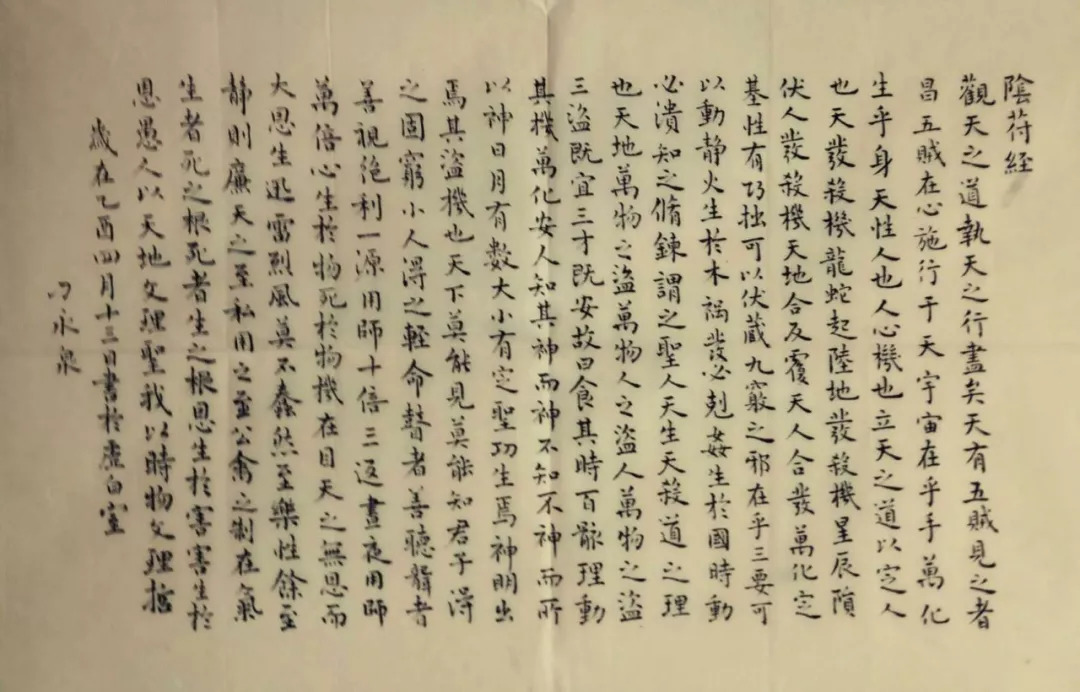 陰符經
觀天之道執天之行盡矣天有五賊見之者
昌五賊在心施行于天宇宙在乎手萬化
生乎身天性人也人心機也立天之道以定人
也天發殺機龍蛇起陸地發殺機星辰隕
伏人發殺機天地合反覆天人合發萬化定
基性有巧拙可以伏藏九竅之邪在乎三要可
以動靜火生於木禍發必剋姦生於國時動
必潰知之脩鍊謂之聖人天生天殺道之理
也天地萬物之盜萬物人之盜人萬物之盜
三盜既宜三才既安故曰食其時百骸理動
其機萬化安人知其神而神不知不神而所
以神日月有數大小有定聖功生焉神明出
焉其盜機也天下莫能見莫能知君子得
之固窮小人得之輕命瞽者善聽聾者
善視絕利一源用師十倍三返晝夜用師
萬倍心生於物死於物機在目天之無恩而
大恩生迅雷烈風莫不蠢然至樂性餘至
靜則廉天之至私用之至公禽之制在氣
生者死之根死者生之根恩生於害害生於
恩愚人以天地文理聖我以時物文理哲
歲在乙酉四月十三日書於虛白室
刁永泉